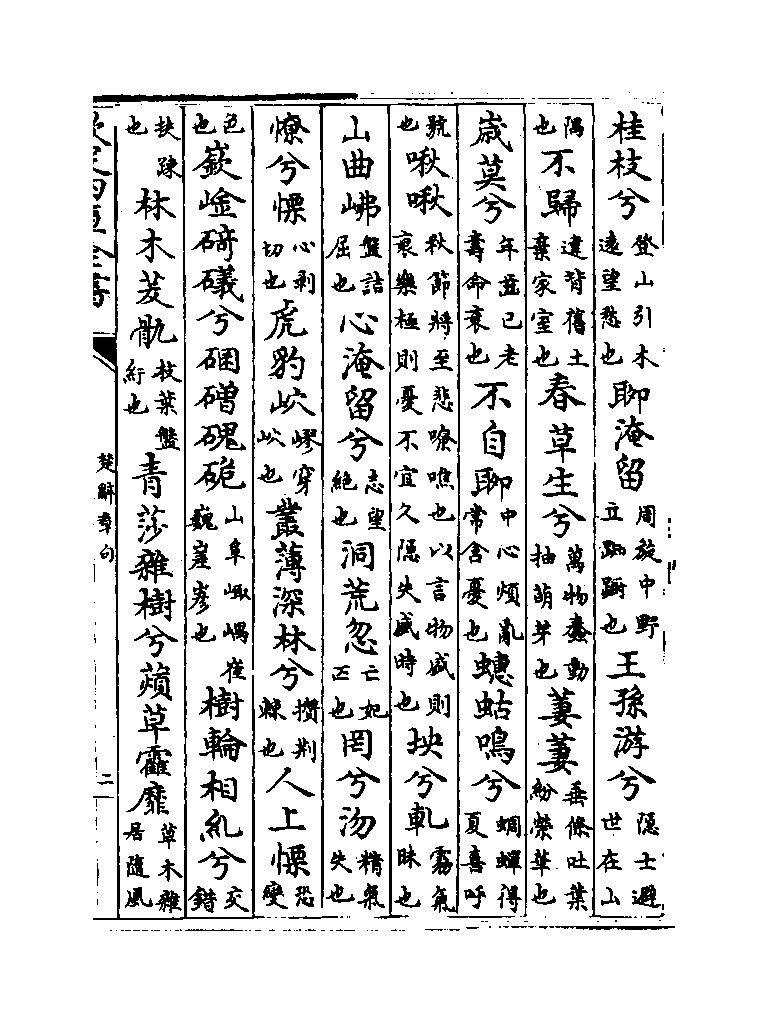 桂枝兮登山引木遠望愁也聊淹留周旋中野立踟蹰也王孫游兮隱士避世在山
隅也不歸違背舊土棄家室也春草生兮萬物蠢動抽萌芽也萋萋垂條吐葉紛榮華也
歲莫兮年齒已老壽命衰也不自聊中心煩亂常含憂也蟪蛄鳴兮蜩蟬得夏喜呼
號也啾啾秋節將至悲嘹噍也以言物盛則衰樂極則憂不宜久隱失盛時也坱兮軋霧氣昧也
山曲岪盤詰屈也心淹留兮志望絶也洞荒忽亡妃匹也罔兮沕精氣失也
憭兮慄心剥切也虎豹岤嵺穿岤也叢薄深林兮攢荆棘也人上慄恐變
色也嶔崟碕礒兮碅磳磈硊山阜㠊嵎崔巍嵳嵾也樹輪相糺兮交錯
扶疎也林木茇骩枝葉盤紆也青莎雜樹兮薠草靃靡草木雜居隨風
楚辭章句
二